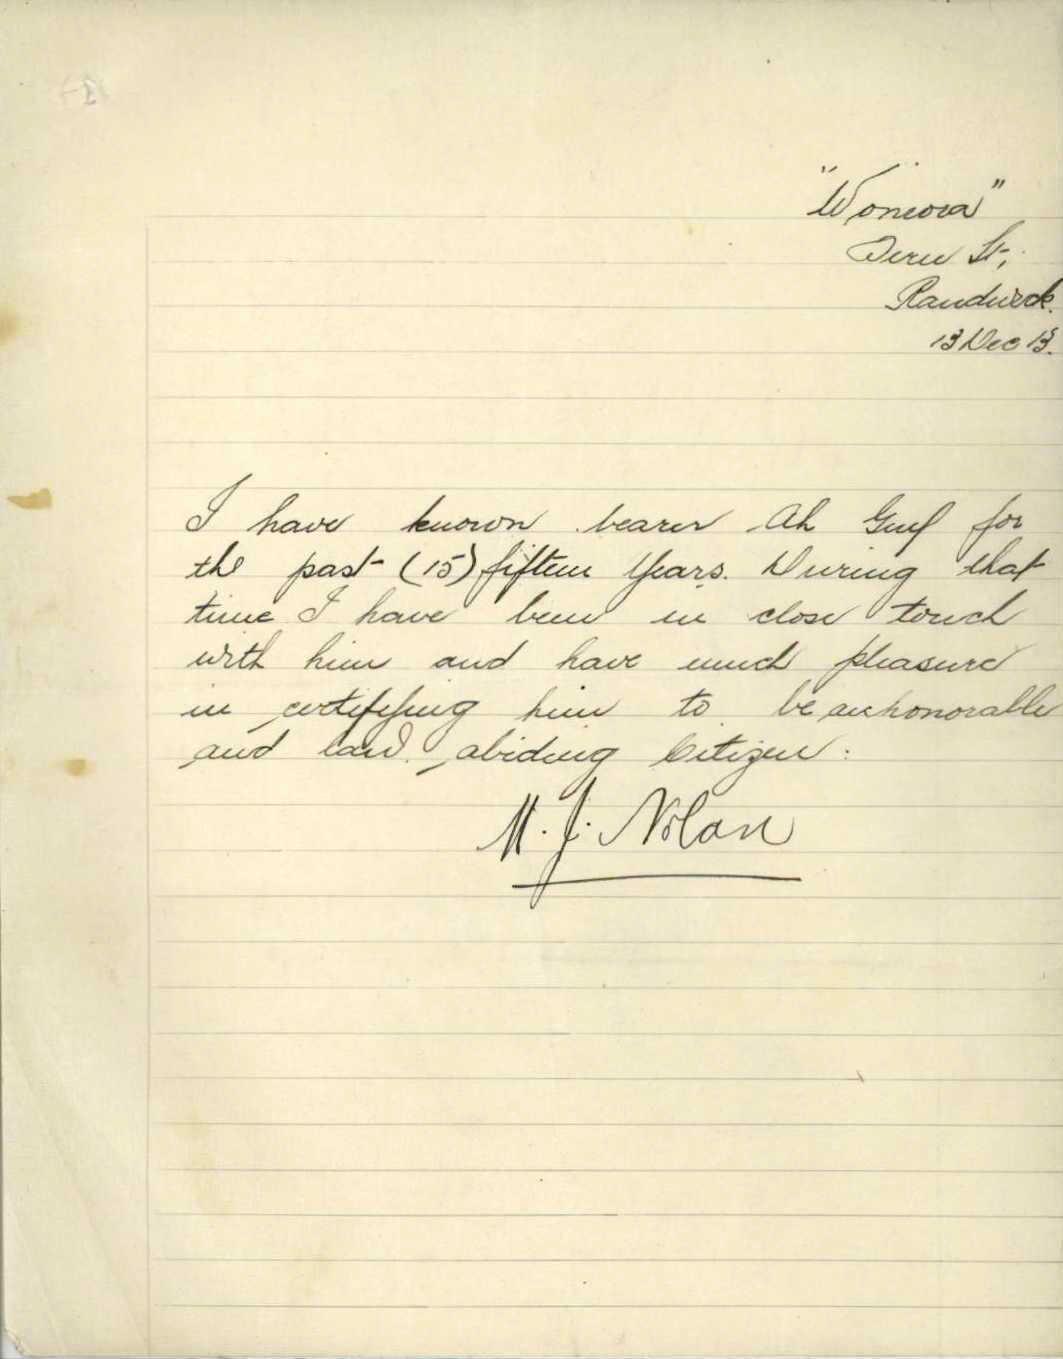 "Woniora"
St,
Randwick.
13 Dec 13.
I have known bearer Ah for
the past (15) fifteen years. During that
time I have been in close touch
with him and have much pleasure
in certifying him to be an honorable
and law abiding Citizen:
M. J. Nolan